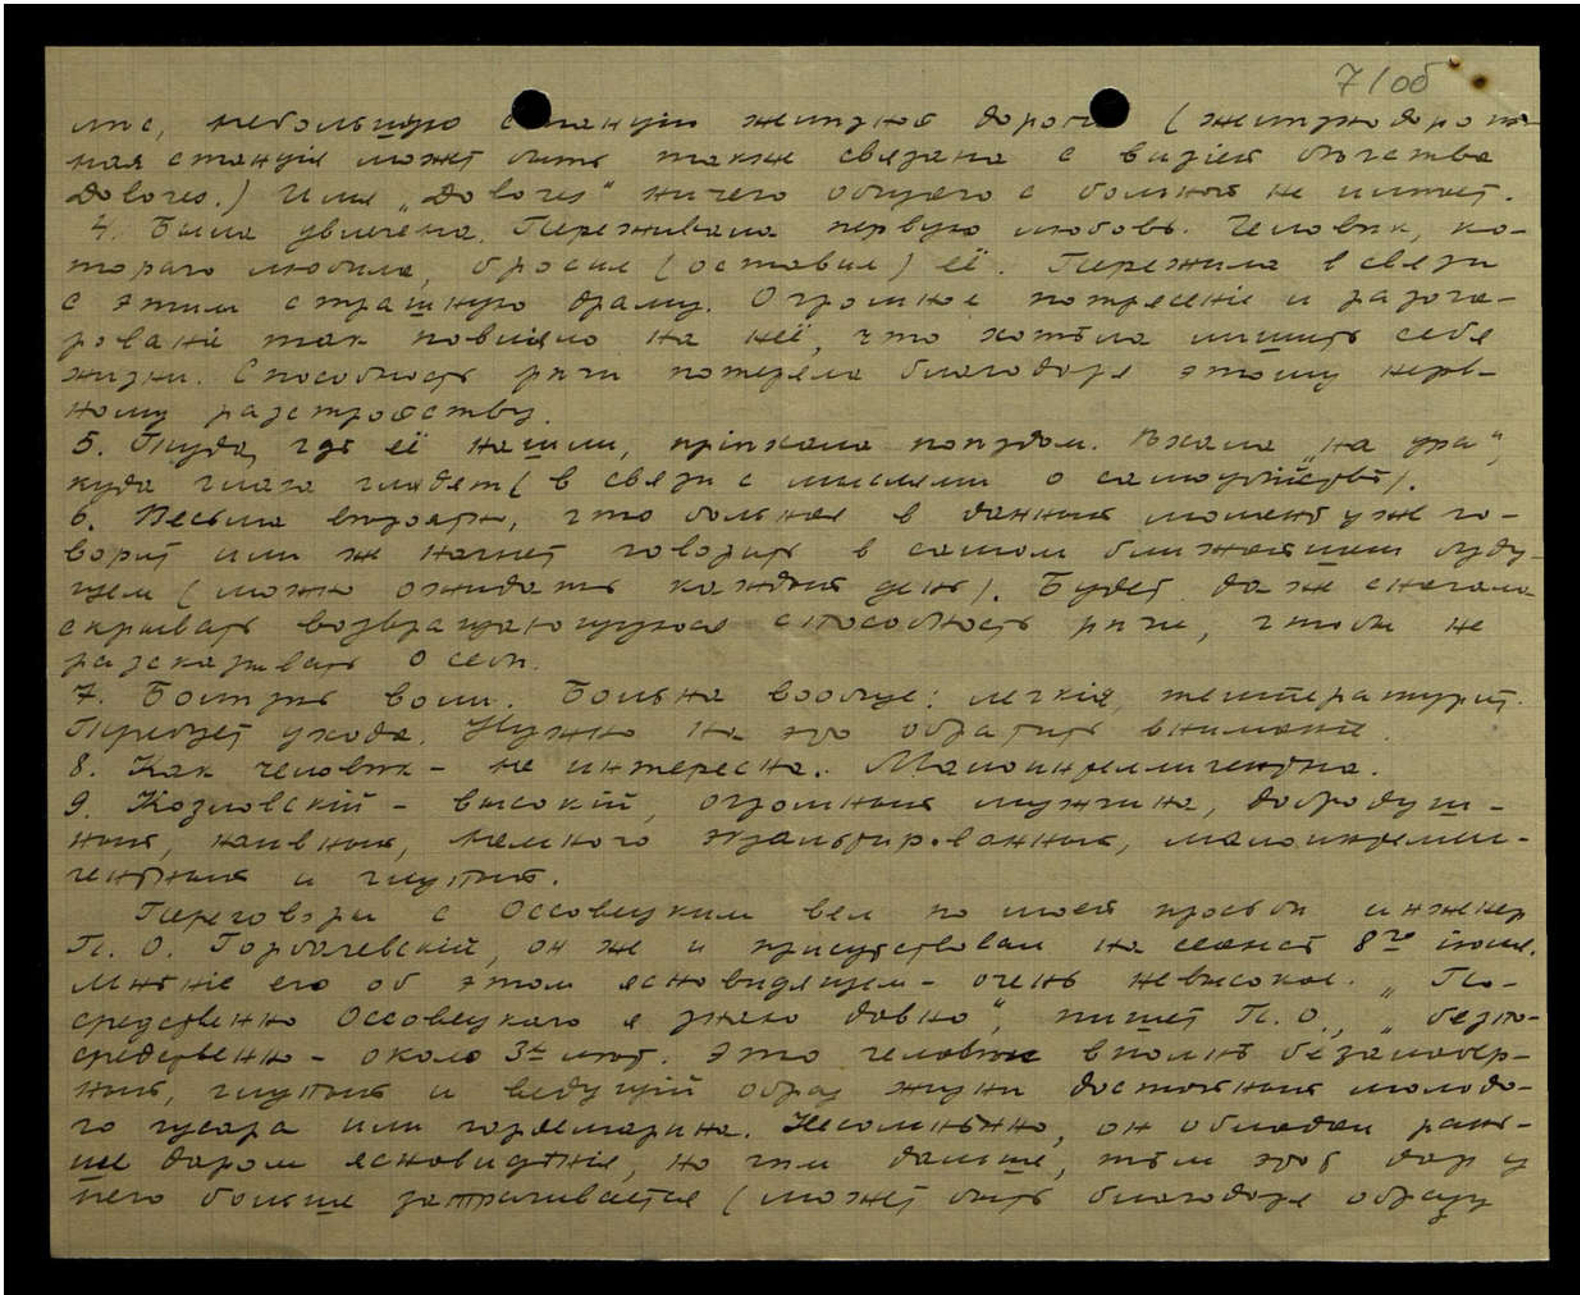 7/об
лѣс, небольшую станцію желѣзной дороги (желѣзнодорож-
ная станція может быть также связана с визіей бѣгства
Dolores.) Имя „Dolores“ ничего общаго с больной не имѣет.
4. Была увлечена. Переживала первую любовь. Человѣк, ко-
тораго любила, бросил (оставил) её. Пережила в связи
с этим страшную драму. Огромное потрясеніе и разоча-
рованіе так повліяло на неё, что хотѣла лишить себя
жизни. Способность рѣчи потеряла благодаря этому нерв-
ному разстройству.
5. Туда, гдѣ её нашли, пріѣхала поѣздом. Ѣхала „на ура“,
куда глаза глядят (в связи с мыслями о самоубійствѣ).
6. Весьма вѣроятно, что больная в данный момент уже го-
ворит или же начнет говорить в самом ближайшем буду-
щем (можно ожидать каждый день). Будет даже сначала
скрывать возвращающуюся способность рѣчи, чтобы не
разсказывать о себѣ.
7. Болѣзнь воли. Больна вообще: легкія, температурит.
Требует ухода. Нужно на это обратить вниманіе.
8. Как человѣк - не интересна. Малоинтеллигентна.
9. Козловскій - высокій, огромный мужчина, добродуш-
ный, наивный, немного экзальтированный, малоинтелли-
гентный и глупый.
Переговоры с Оссовецким вел по моей просьбѣ инженер
П. О. Горбачевскій, он же и присутствовал на сеансѣ 8го іюля.
Мнѣніе его об этом ясновидящем - очень невысокое. „По-
средственно Оссовецкаго я знаю давно“, пишет П. О., „безпо-
средственно - около 3х лѣт. Это человѣк вполнѣ безалабер-
ный, глупый и ведущій образ жизни достойный молодо-
го гусара или гардемарина. Несомнѣнно, он обладал рань-
ше даром ясновидѣнія, но чѣм дальше, тѣм этот дар у
него больше затрачивается (может быть благодаря образу